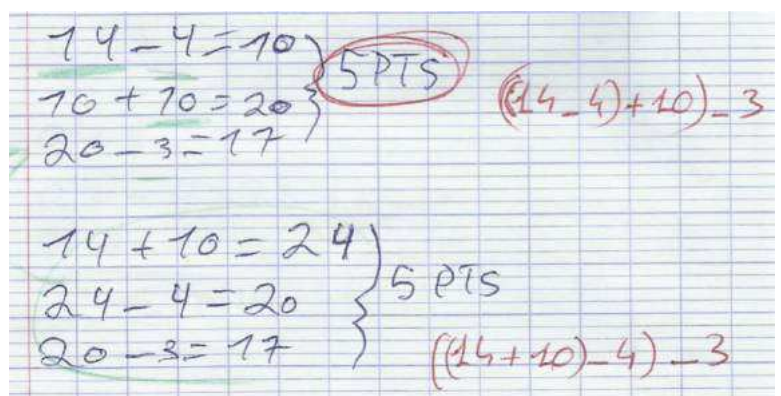 14 - 4 = 10
10 + 10 = 20
20 - 3 = 17
5 PTS
((14 - 4) + 10) - 3
14 + 10 = 24
24 - 4 = 20
20 - 3 = 17
5 PTS
((14 + 10) - 4) - 3